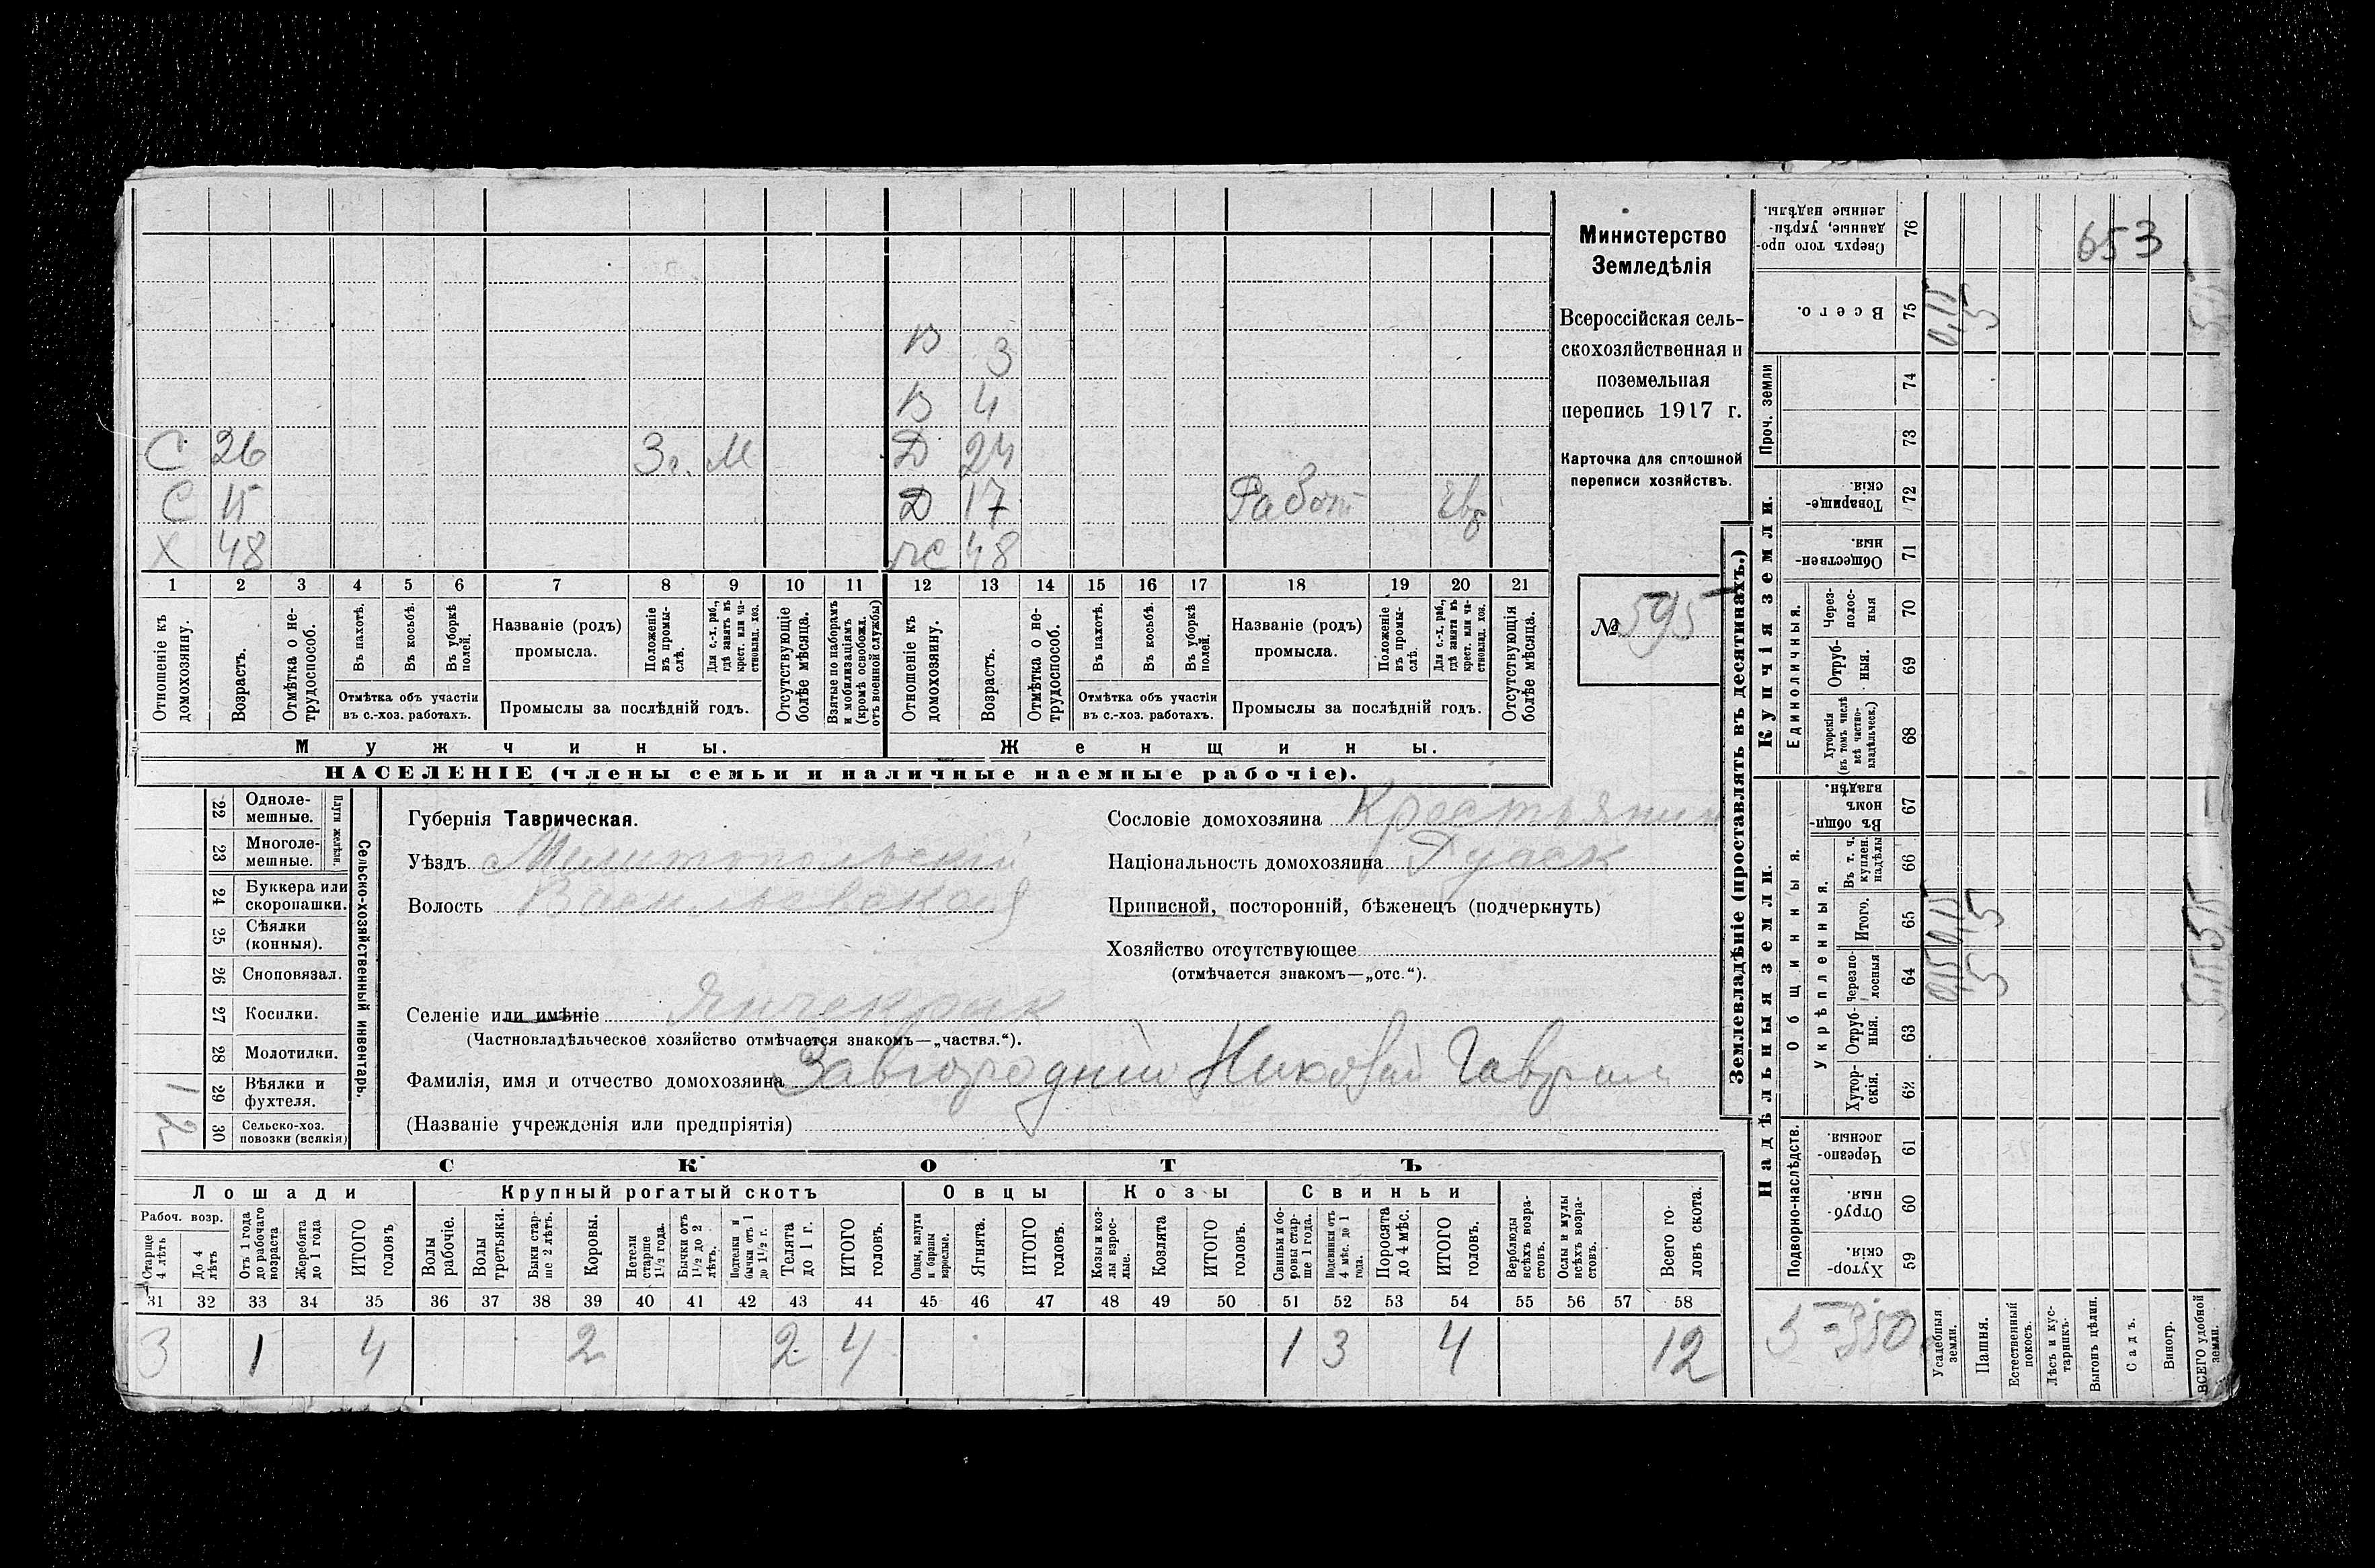 Министерство
Земледѣлія
Всероссійская сель-
скохозяйственная и
поземельная
перепись 1917 г.
Карточка для сплошной
переписи хозяйствъ.
№ 595
В 3
В 4
С 26 Зг. М Д 24
С 15 Д 17 Работ
Х 48 ЖС 48
1 2 3 4 5 6 7 8 9 10 11 12 13 14 15 16 17 18 19 20 21
Отношеніе къ домохозяину.
Возрастъ.
Отмѣтка о не-трудоспособ.
Въ пахотѣ.
Въ косьбѣ.
Въ уборкѣ полей.
Отмѣтка объ участіи
въ с.-хоз. работахъ.
Названіе (родъ)
промысла.
Положеніе въ промы-слѣ.
Для с.-х. раб., гдѣ занятъ въ крест. или ча-стновлад. хоз.
Промыслы за послѣдній годъ.
Отсутствующіе болѣе мѣсяца.
Взятые по наборамъ и мобилизаціямъ (кромѣ освобожд. отъ военной службы)
Отношеніе къ домохозяину.
Возрастъ.
Отмѣтка о не-трудоспособ.
Въ пахотѣ.
Въ косьбѣ.
Въ уборкѣ полей.
Отмѣтка объ участіи
въ с.-хоз. работахъ.
Названіе (родъ)
промысла.
Положеніе въ промы-слѣ.
Для с.-х. раб., гдѣ занята въ крест. или ча-стновлад. хоз.
Промыслы за послѣдній годъ.
Отсутствующія болѣе мѣсяца.
Мужчины. Женщины.
НАСЕЛЕНІЕ (члены семьи и наличные наемные рабочіе).
Сельско-хозяйственный инвентарь.
Плуги желѣзн.
22 Одноле-мешные.
23 Многоле-мешные.
24 Буккера или скоропашки.
25 Сѣялки (конныя).
26 Сноповязал.
27 Косилки.
28 Молотилки.
29 Вѣялки и фухтеля. 1
30 Сельско-хоз. повозки (всякія) 2
Губернія Таврическая.
Уѣздъ Мелитопольский
Волость Васильевская
Селеніе или имѣніе Янчекрак
(Частновладѣльческое хозяйство отмѣчается знакомъ—„частвл.“).
Фамилія, имя и отчество домохозяина Завгородний Николай Гаврил
(Названіе учрежденія или предпріятія)
Сословіе домохозяина Крестьянин
Національность домохозяина Русск
Приписной, посторонній, бѣженецъ (подчеркнуть)
Хозяйство отсутствующее
(отмѣчается знакомъ—„отс.“).
СКОТЪ
Лошади Крупный рогатый скотъ Овцы Козы Свиньи
Рабоч. возр.
Старше 4 лѣтъ
До 4 лѣтъ
Отъ 1 года до рабочаго возраста
Жеребята до 1 года
ИТОГО головъ
Волы рабочіе.
Волы третьяки.
Быки стар-ше 2 лѣтъ.
Коровы.
Нетели старше 1½ года.
Бычки отъ 1½ до 2 лѣтъ.
Подтелки и бычки отъ 1 до 1½ г.
Телята до 1 г.
ИТОГО головъ.
Овцы, валухи и бараны взрослые.
Ягнята.
ИТОГО головъ.
Козы и коз-лы взрос-лые.
Козлята
ИТОГО головъ.
Свиньи и бо-ровы стар-ше 1 года.
Подсвинки отъ 4 мѣс. до 1 года.
Поросята до 4 мѣс.
ИТОГО головъ.
Верблюды всѣхъ возра-стовъ.
Ослы и мулы всѣхъ возра-стовъ.
Всего го-ловъ скота.
31 32 33 34 35 36 37 38 39 40 41 42 43 44 45 46 47 48 49 50 51 52 53 54 55 56 57 58
3 1 4 2 2 4 1 3 4 12
Землевладѣніе (проставлять въ десятинахъ.)
Купчія земли.
Надѣльныя земли.
76 Сверхъ того про-данные, укрѣп-ленные надѣлы. 653
75 Всего. 0,15 5 5,15
Проч. земли
74
73
72 Товарище-скія.
71 Обществен-ныя.
Единоличныя.
70 Через-полос-ныя
69 Отруб-ныя.
68 Хуторскія (въ томъ числѣ всѣ частно-владѣльческ.)
Общинныя.
67 Въ общи-номъ владѣн.
Укрѣпленныя.
66 Въ т. ч. куплен. надѣлы
65 Итого. 0,15 5 5,15
64 Черезпо-лосныя 0,15 5 5,15
63 Отруб-ныя.
62 Хутор-скія.
Подворно-наслѣдств.
61 Черезпо-лосныя.
60 Отруб-ныя.
59 Хутор-скія.
5-350
Усадебныя земли.
Пашня.
Естественный покосъ.
Лѣсъ и кус-тарникъ.
Выгонъ цѣлин.
Садъ.
Виногр.
ВСЕГО удобной земли.